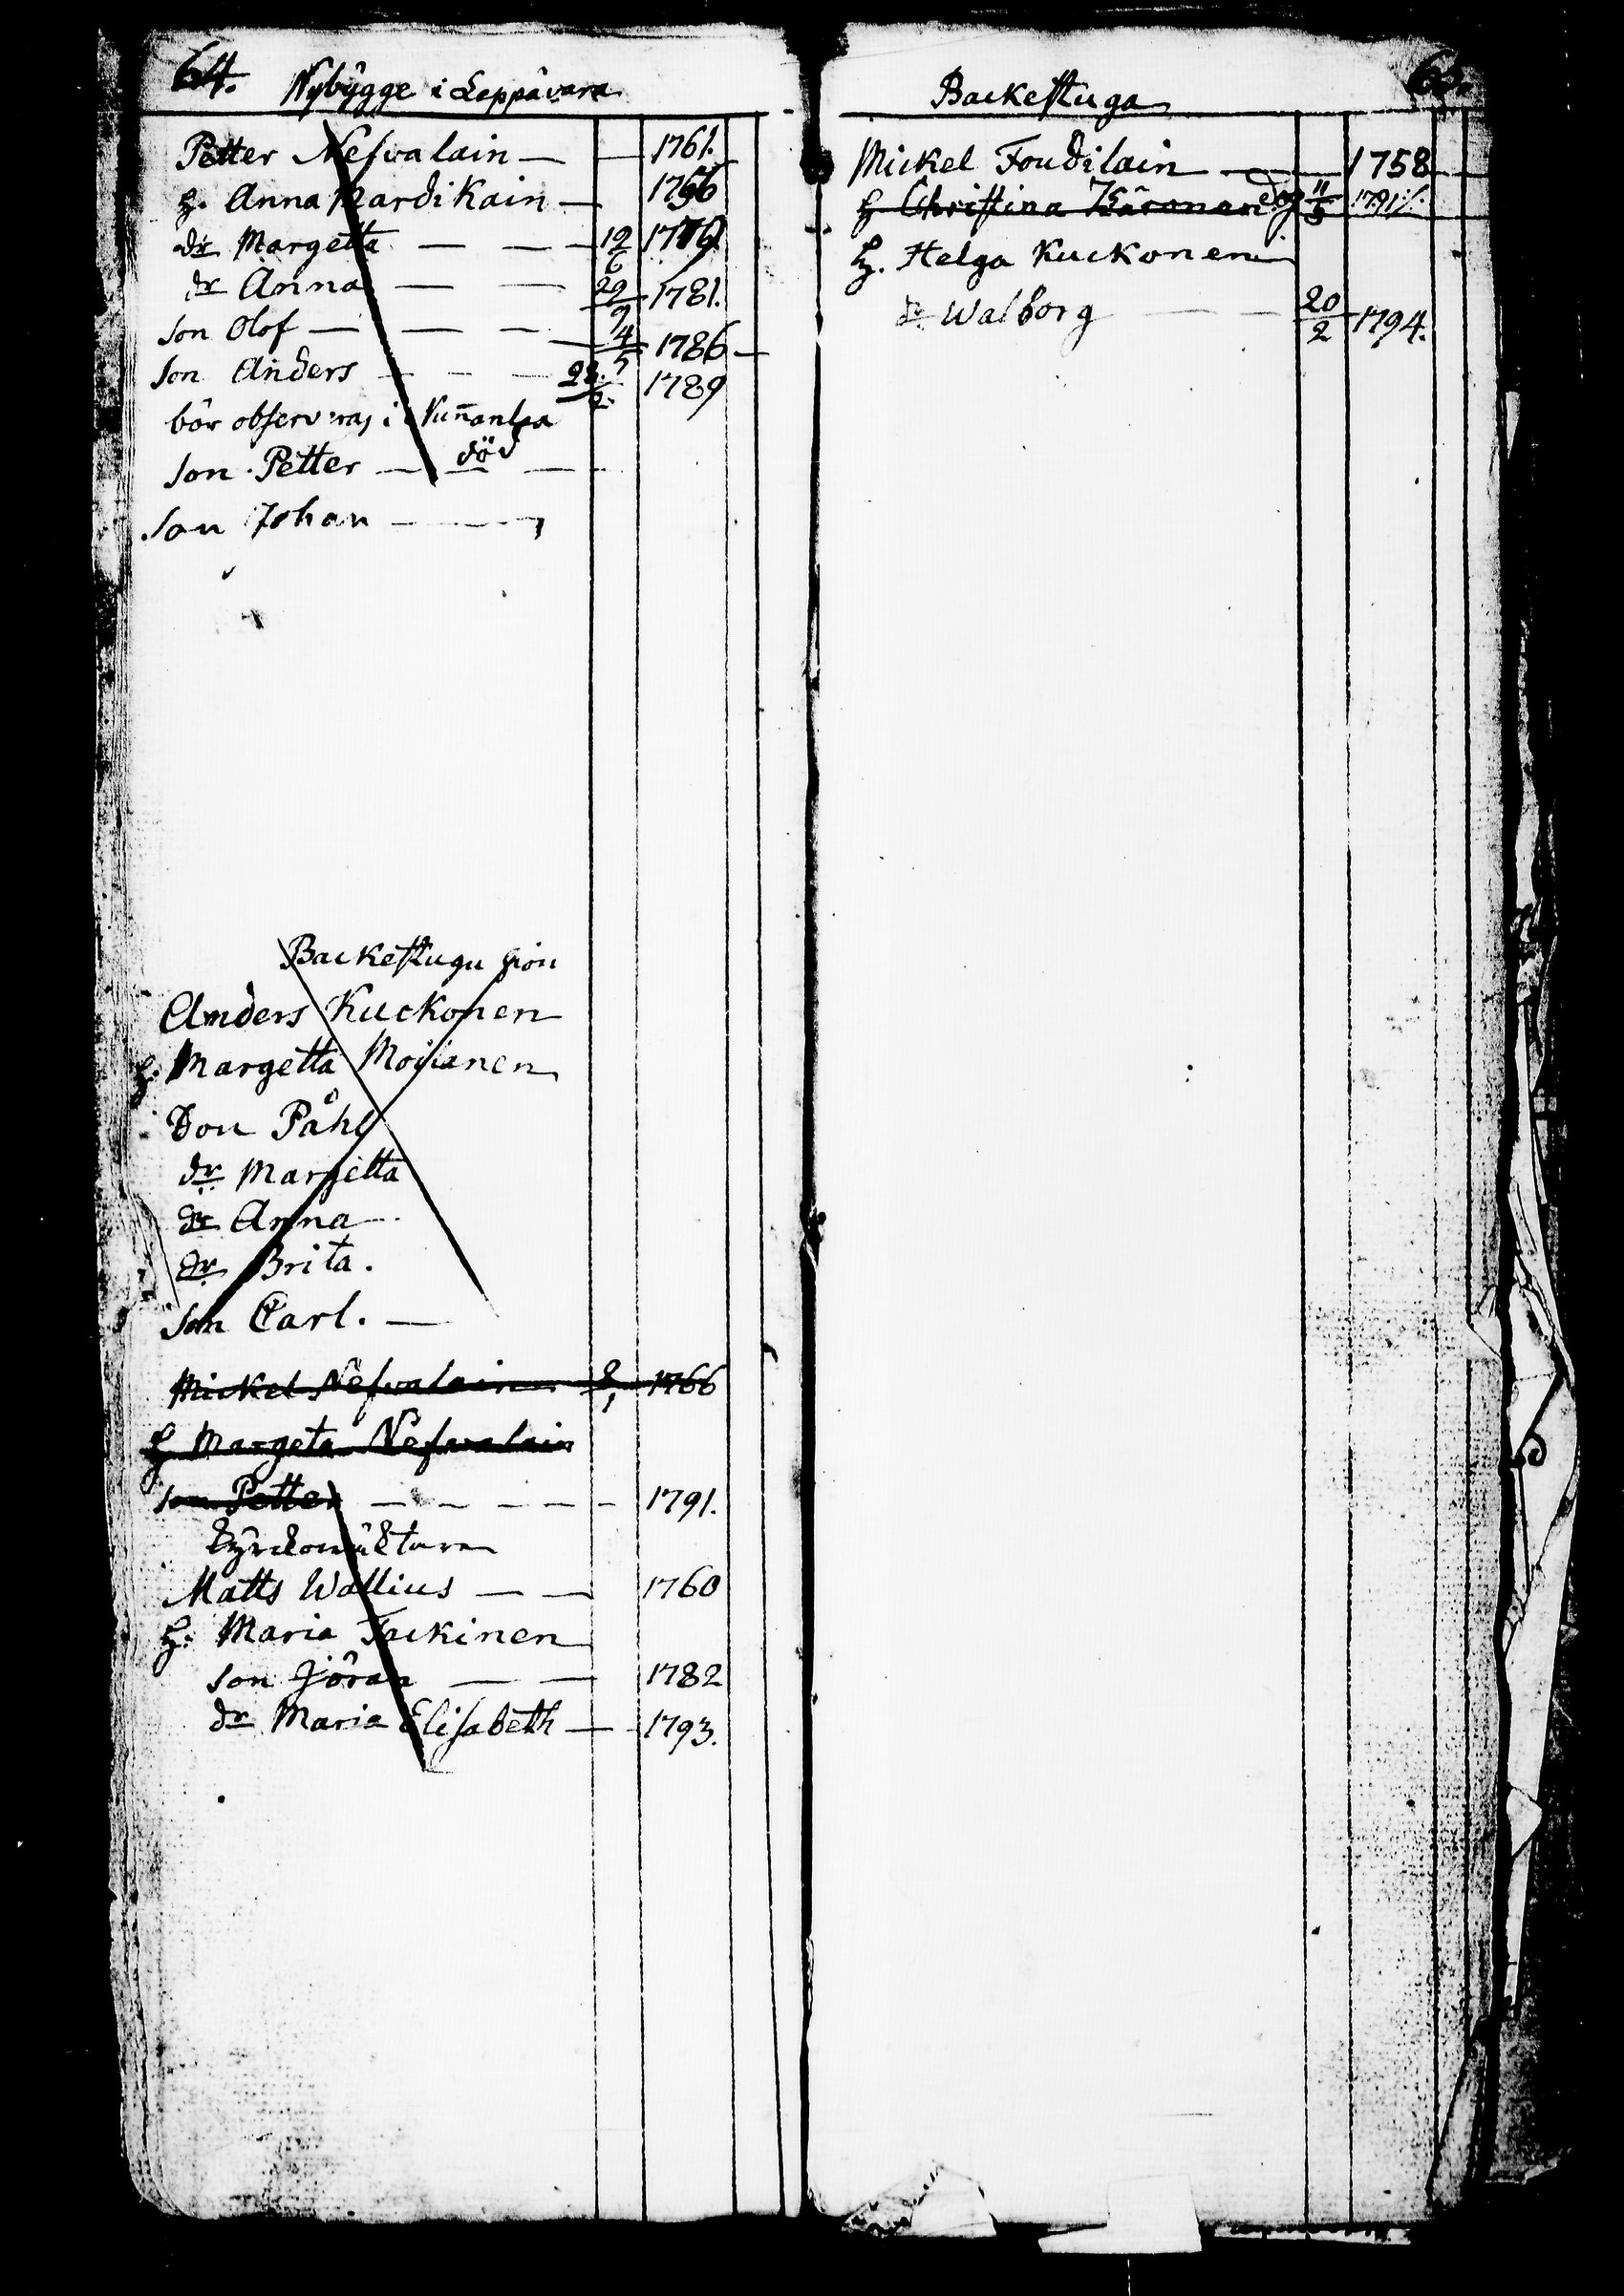 64. Nybygge i Leppävara
Petter Nefvalain 1761.
h. Anna Pardikain 1756
dr Margetta 12/6 1779
dr Anna 29/9 1781.
son Olof 4/5 1786
son Anders 28/2 1789
bör observeras i
son Petter död
son Johan
Backestugu hion
Anders Kuckonen
h. Margetta Moilanen
Son Påhl
dr Margetta
dr Anna
dr Brita.
son Carl.
Mickel Nefvalainen 1766
h Margeta Nefvalain
son Petter 1791.
Kyrckowächtaren
Matts Wallius 1760
h. Maria Tackinen
son Jöran 1782
dr Maria Elisabeth 1793.
Backestuga
Mickel Foudilain 1758
h Christina 11/5 1791
h. Helga Kuckonen
dr Walborg 20/2 1794.